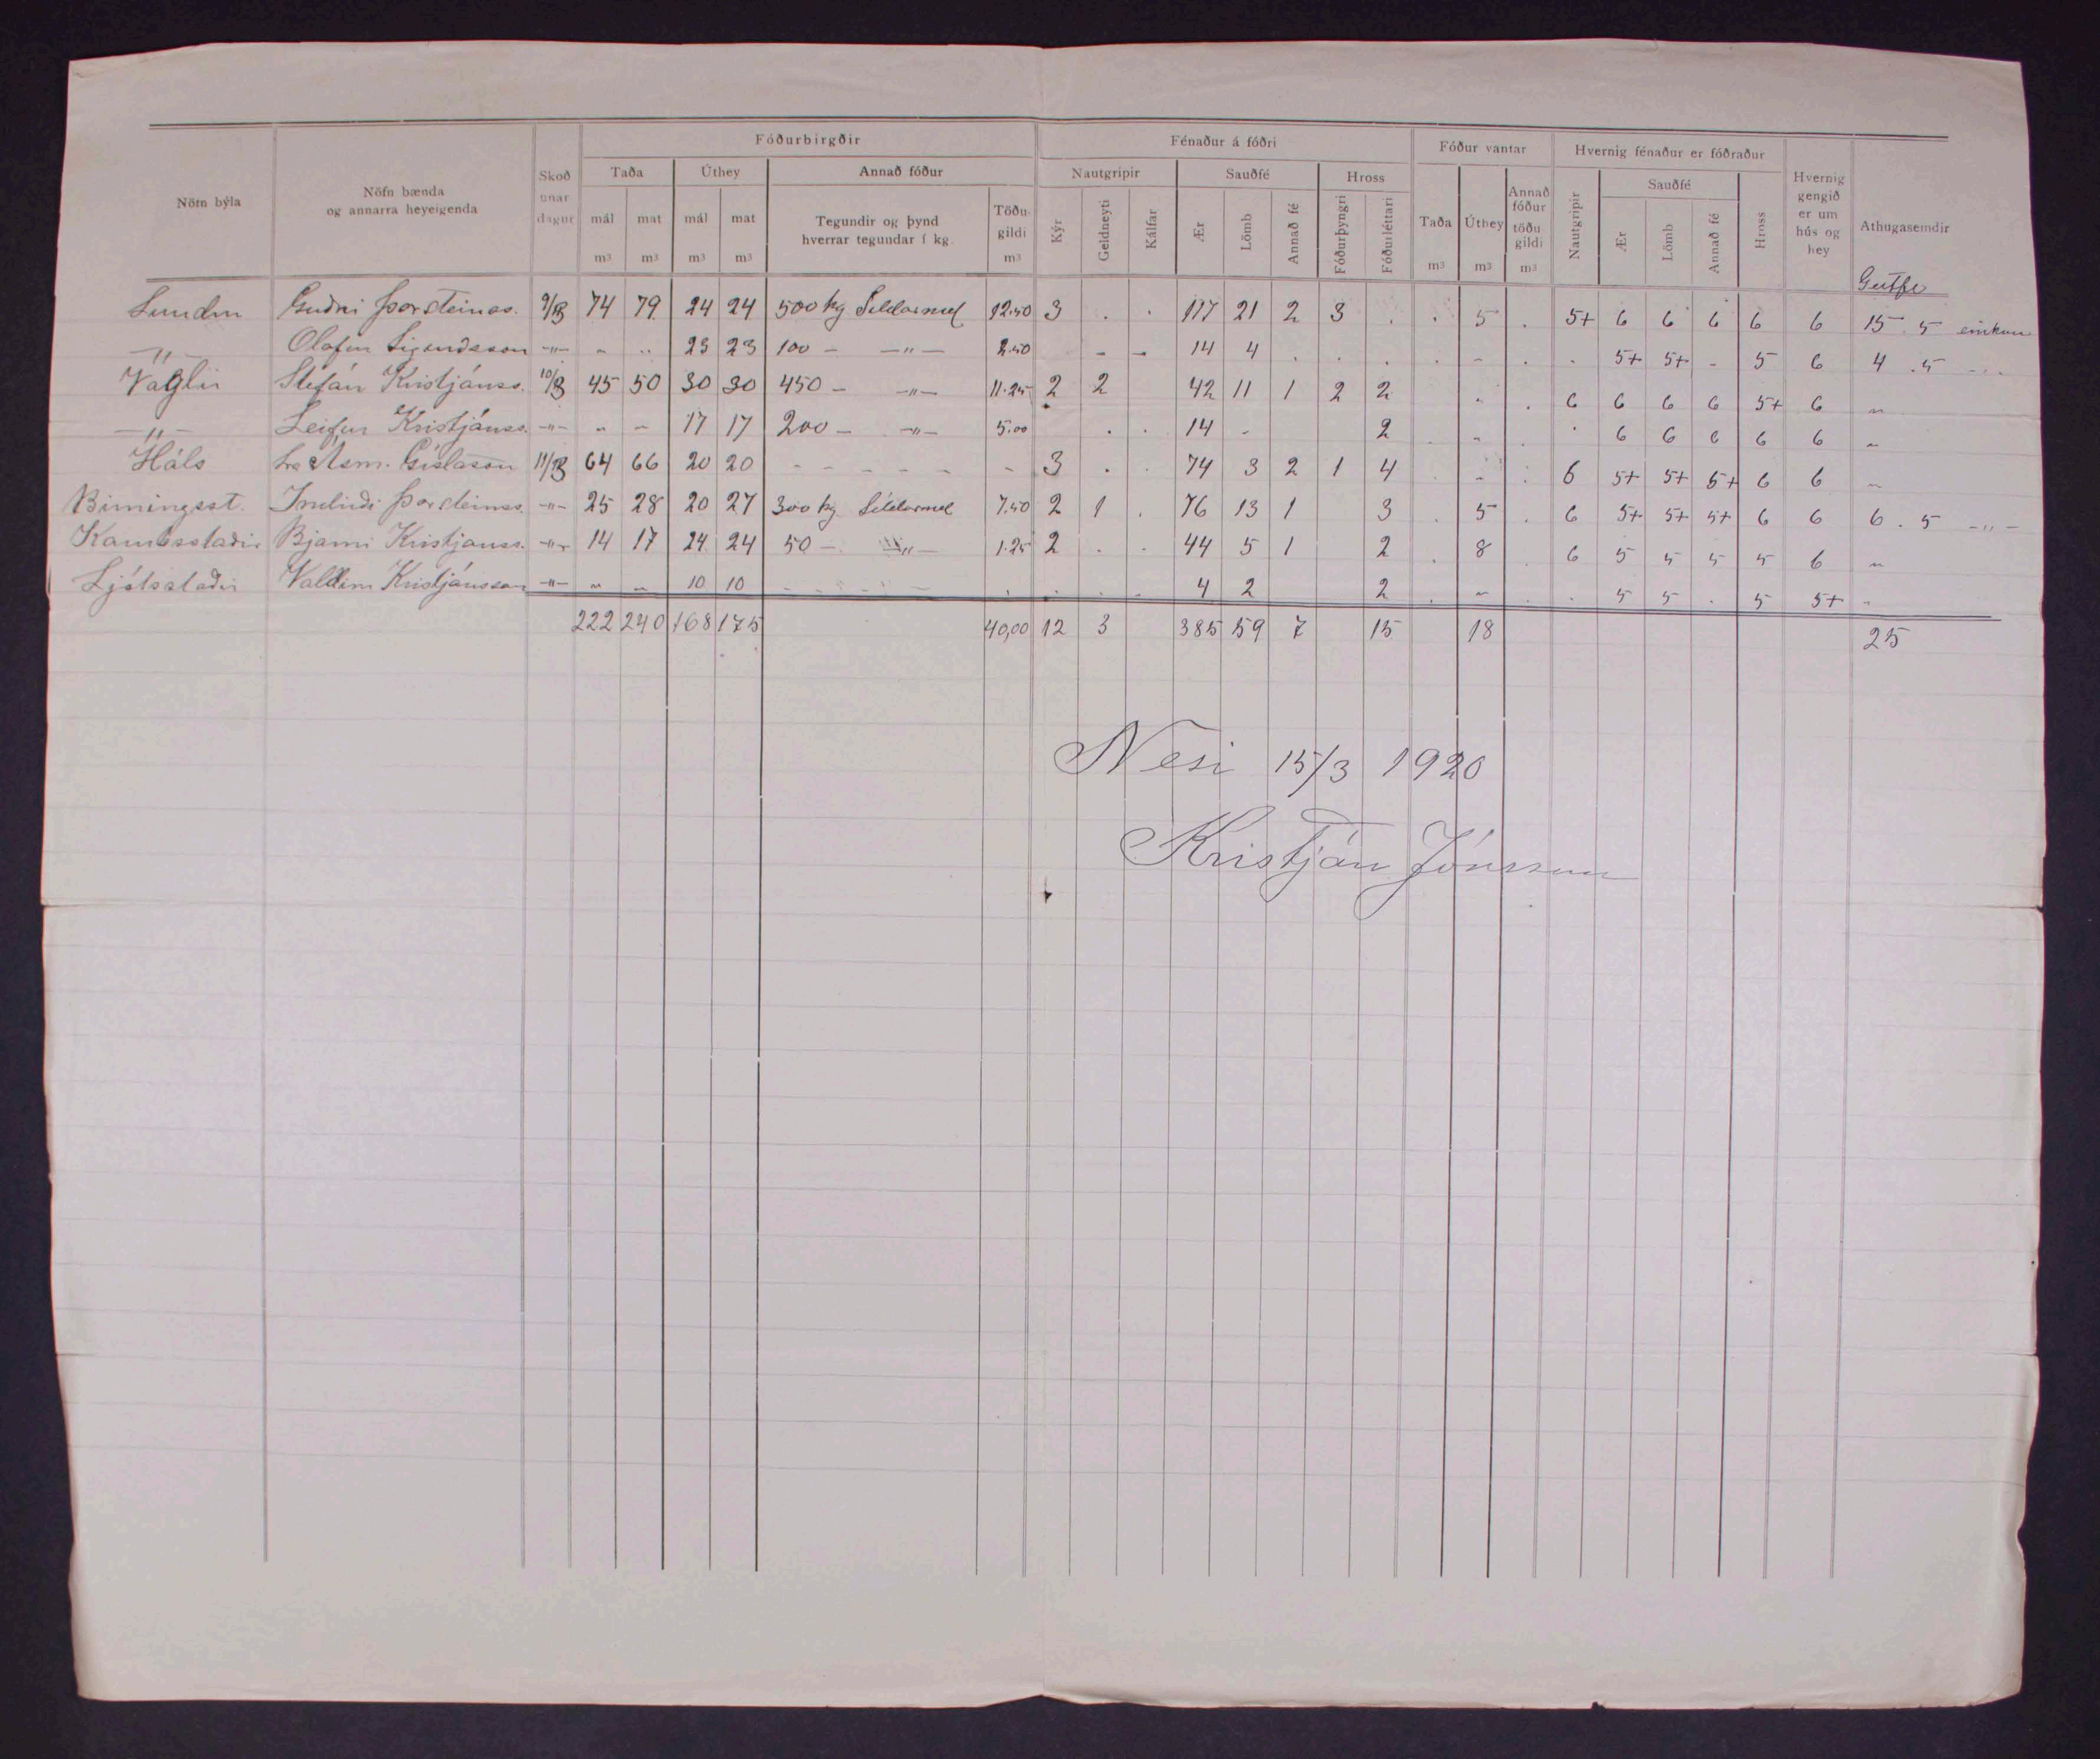 Fóðurbirgðir Fénaður á fóðri Fóður vantar Hvernig fénaður er fóðraður
Nöfn býla Nöfn bænda og annarra heyeigenda Skoðunardagur Taða Úthey Annað fóður Nautgripir Sauðfé Hross Taða Úthey Annað fóður töðugildi Nautgripir Sauðfé Hross Hvernig gengið er um hús og hey Athugasemdir
mál mat mál mat Tegundir og þynd hverrar tegundar í kg. Töðugildi Kýr Geldneyti Kálfar Ær Lömb Annað fé Fóðurþyngri Fóðurléttari Ær Lömb Annað fé
m³ m³ m³ m³ m³ m³ m³ m³
Lundur Guðni Þorsteinss. 9/3 74 79 24 24 500 kg Síldarmel 12.50 3 . . 117 21 2 3 . . 5 . 5+ 6 6 6 6 6 15 . 5 einkun
—"— Olafur —"— - .. 23 23 100 — —"— 2.50 - - 14 4 . . . . . - . . 5+ 5+ - 5 6 4 . 5 - . .
Vaglir Stefán Kristjánss. 10/3 45 50 30 30 450 — —"— 11.25 2 2 42 11 1 2 2 " . 6 6 6 6 5+ 6 "
—"— Leifur Kristjánss. —"— " - 17 17 200 — —"— 5.00 . . 14 - 2 . " . . 6 6 6 6 6 "
Háls Ásm. Gíslason 11/3 64 66 20 20 - - - - - - 3 . . 74 3 2 1 4 . - . 6 5+ 5+ 5+ 6 6 "
Birningsst. Indriði Þorsteinss. —"— 25 28 20 27 300 kg Síldarmel 7.50 2 1 . 76 13 1 3 . 5 . 6 5+ 5+ 5+ 6 6 6 . 5 —"—
Kambsstaðir Bjarni Kristjánss. —"— 14 17 24 24 50 — —"— 1.25 2 . . 44 5 1 2 . 8 . 6 5 5 5 5 6 "
Ljótsstaðir Valdim Kristjánsson —"— " " 10 10 - - - - - . . . . 4 2 2 . " . . 5 5 . 5 5+ "
222 240 168 175 40,00 12 3 385 59 7 15 18 25
Nesi 15/3 1920
Kristján Jónsson